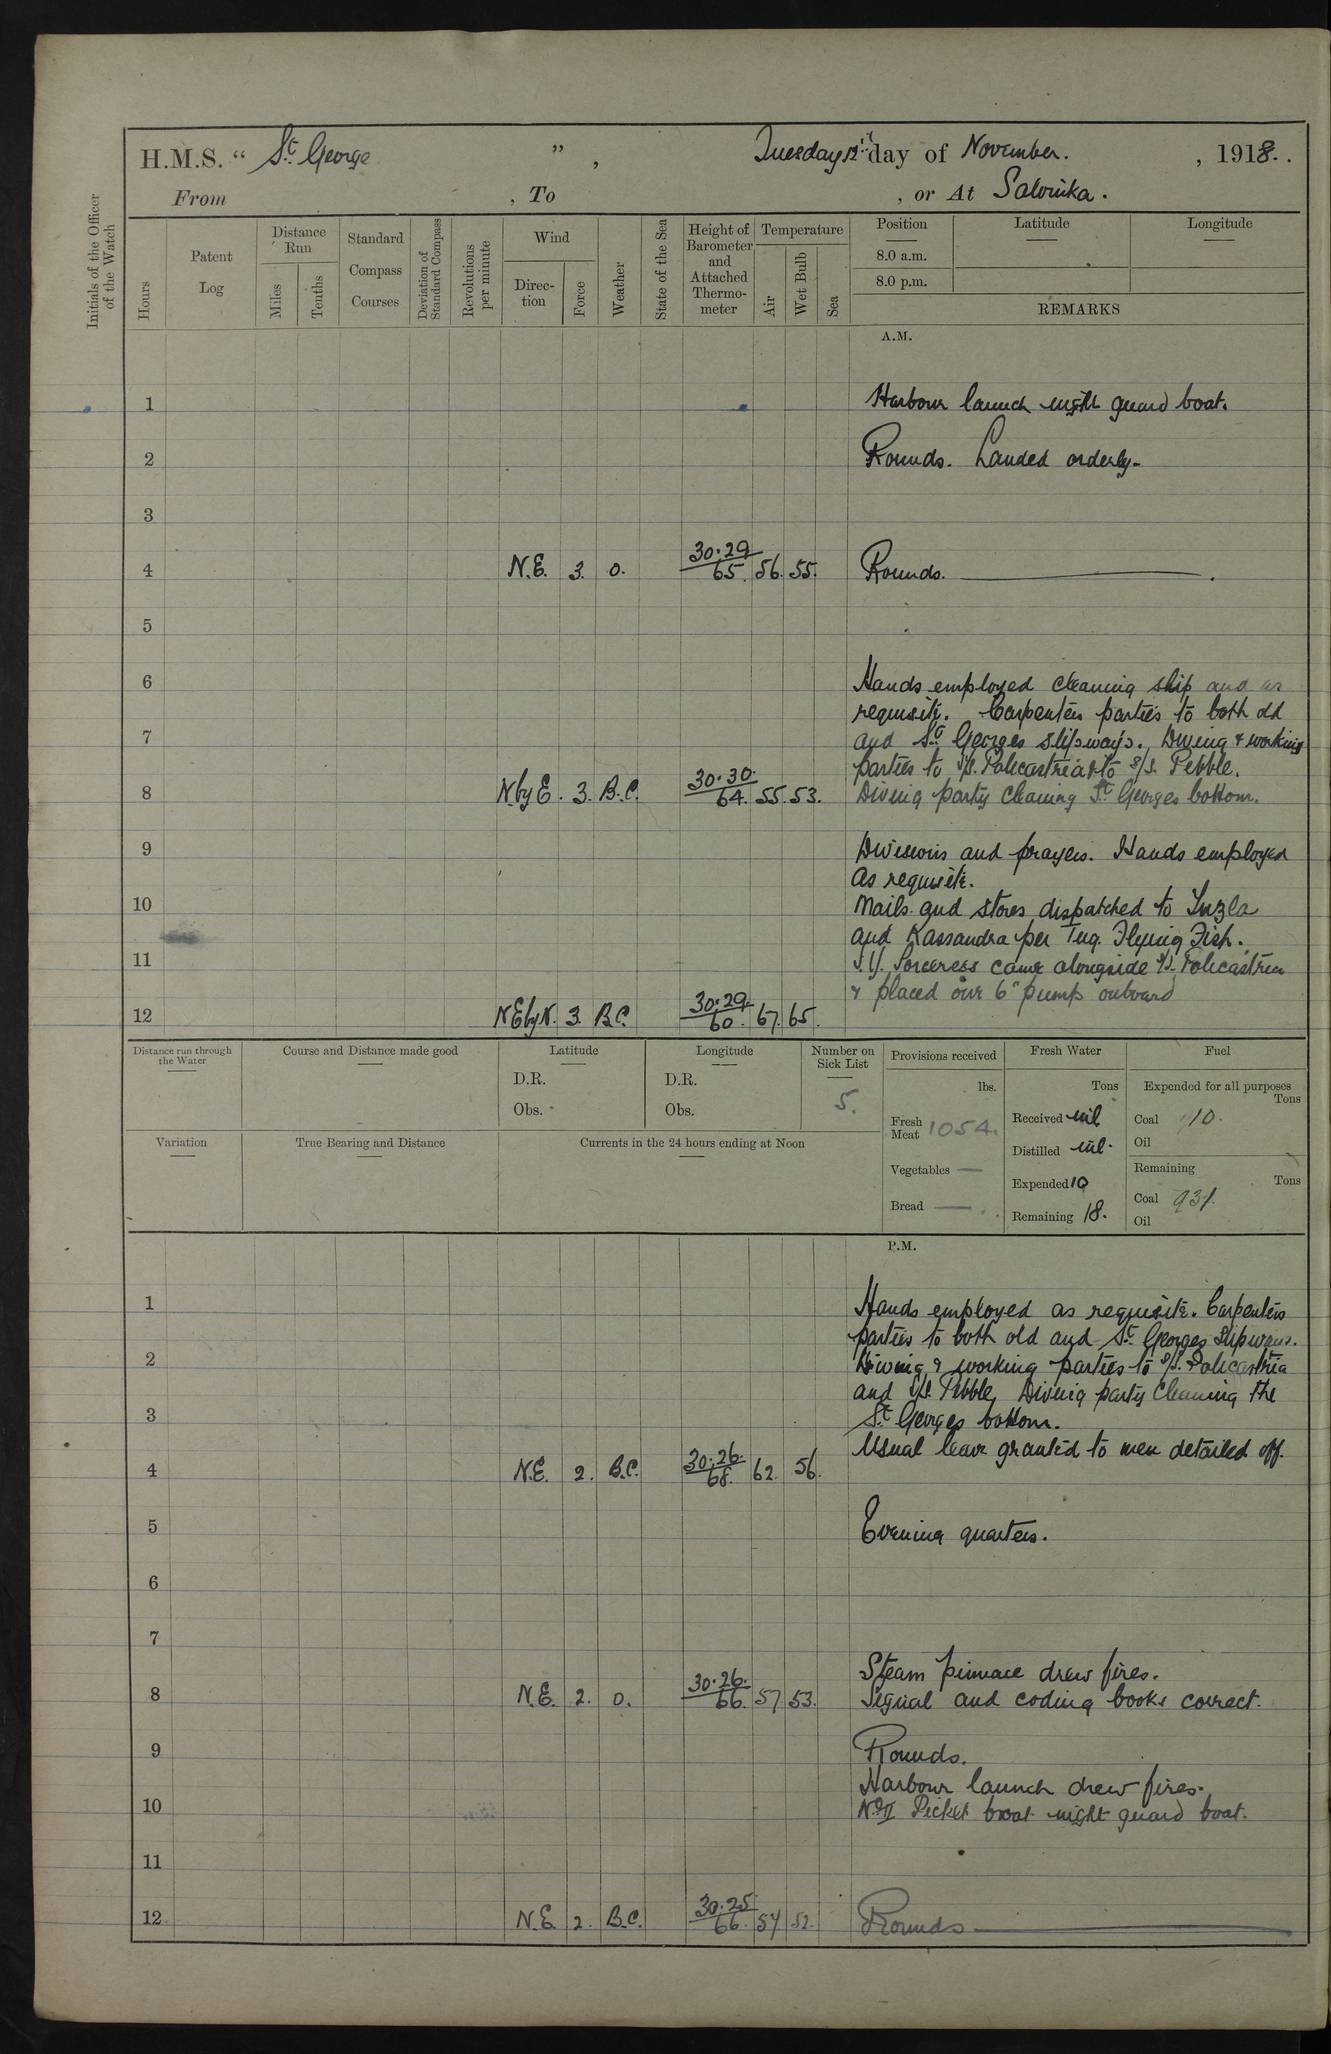 H.M.S. “ St George ” , Tuesday 12th day of November. , 1918.
From , To , or At Salonika.
Initials of the Officer of the Watch
Hours
Patent Log
Distance Run
Miles
Tenths
Standard Compass Courses
Deviation of Standard Compass
Revolutions per minute
Wind
Direction
Force
Weather
State of the Sea
Height of Barometer and Attached Thermometer
Temperature
Air
Wet Bulb
Sea
Position
8.0 a.m.
8.0 p.m.
Latitude
Longitude
REMARKS
A.M.
1 Harbour launch night guard boat.
2 Rounds. Landed orderly-
3
4 N.E. 3. o. 30.29 65. 56. 55. Rounds.
5
6 Hands employed cleaning ship and as
requisite. Carpenters parties to both old
7 and St Georges slipways. Diving & working
parties to S/S. Policastria & to S/S. Pebble.
8 N by E. 3. B.C. 30.30. 64. 55. 53. Diving party cleaning St Georges bottom.
9 Divisions and prayers. Hands employed
as requisite.
10 Mails and stores dispatched to Tuzla
and Kassandra per Tug. Flying Fish.
11 S.Y. Sorceress came alongside S/S. Policastria
& placed our 6" pump onboard
12 NE by N. 3. B.C. 30.29. 60. 67. 65.
Distance run through the Water
Course and Distance made good
Latitude
D.R.
Obs.
Longitude
D.R.
Obs.
Number on Sick List
5.
Provisions received
lbs.
Fresh Meat 1054.
Vegetables —
Bread —
Fresh Water
Tons
Received nil
Distilled nil.
Expended 10
Remaining 18.
Fuel
Expended for all purposes
Tons
Coal 10.
Oil
Remaining
Tons
Coal 931.
Oil
Variation
True Bearing and Distance
Currents in the 24 hours ending at Noon
P.M.
1 Hands employed as requisite. Carpenters
parties to both old and St Georges slipways.
2 Diving & working parties to S/S. Policastria
and S/S. Pebble, Diving party cleaning the
3 St Georges bottom.
Usual leave granted to men detailed off.
4 N.E. 2. B.C. 30.26. 68. 62. 56.
5 Evening quarters.
6
7
Steam pinnace drew fires.
8 N.E. 2. o. 30.26. 66. 57 53. Signal and coding books correct.
9 Rounds.
Harbour launch drew fires.
10 No II Picket boat night guard boat.
11
12 N.E. 2. B.C. 30.25 66. 54 52. Rounds